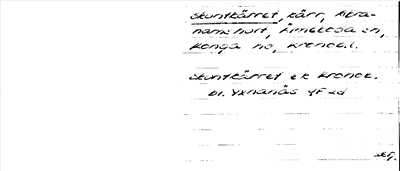 Skuntkärret, kärr, Abra-
hamshult, Älmeboda sn,
Konga hd, Kronob.l.
Skuntkärret ek Kronob.
bl. Yxnanäs YF